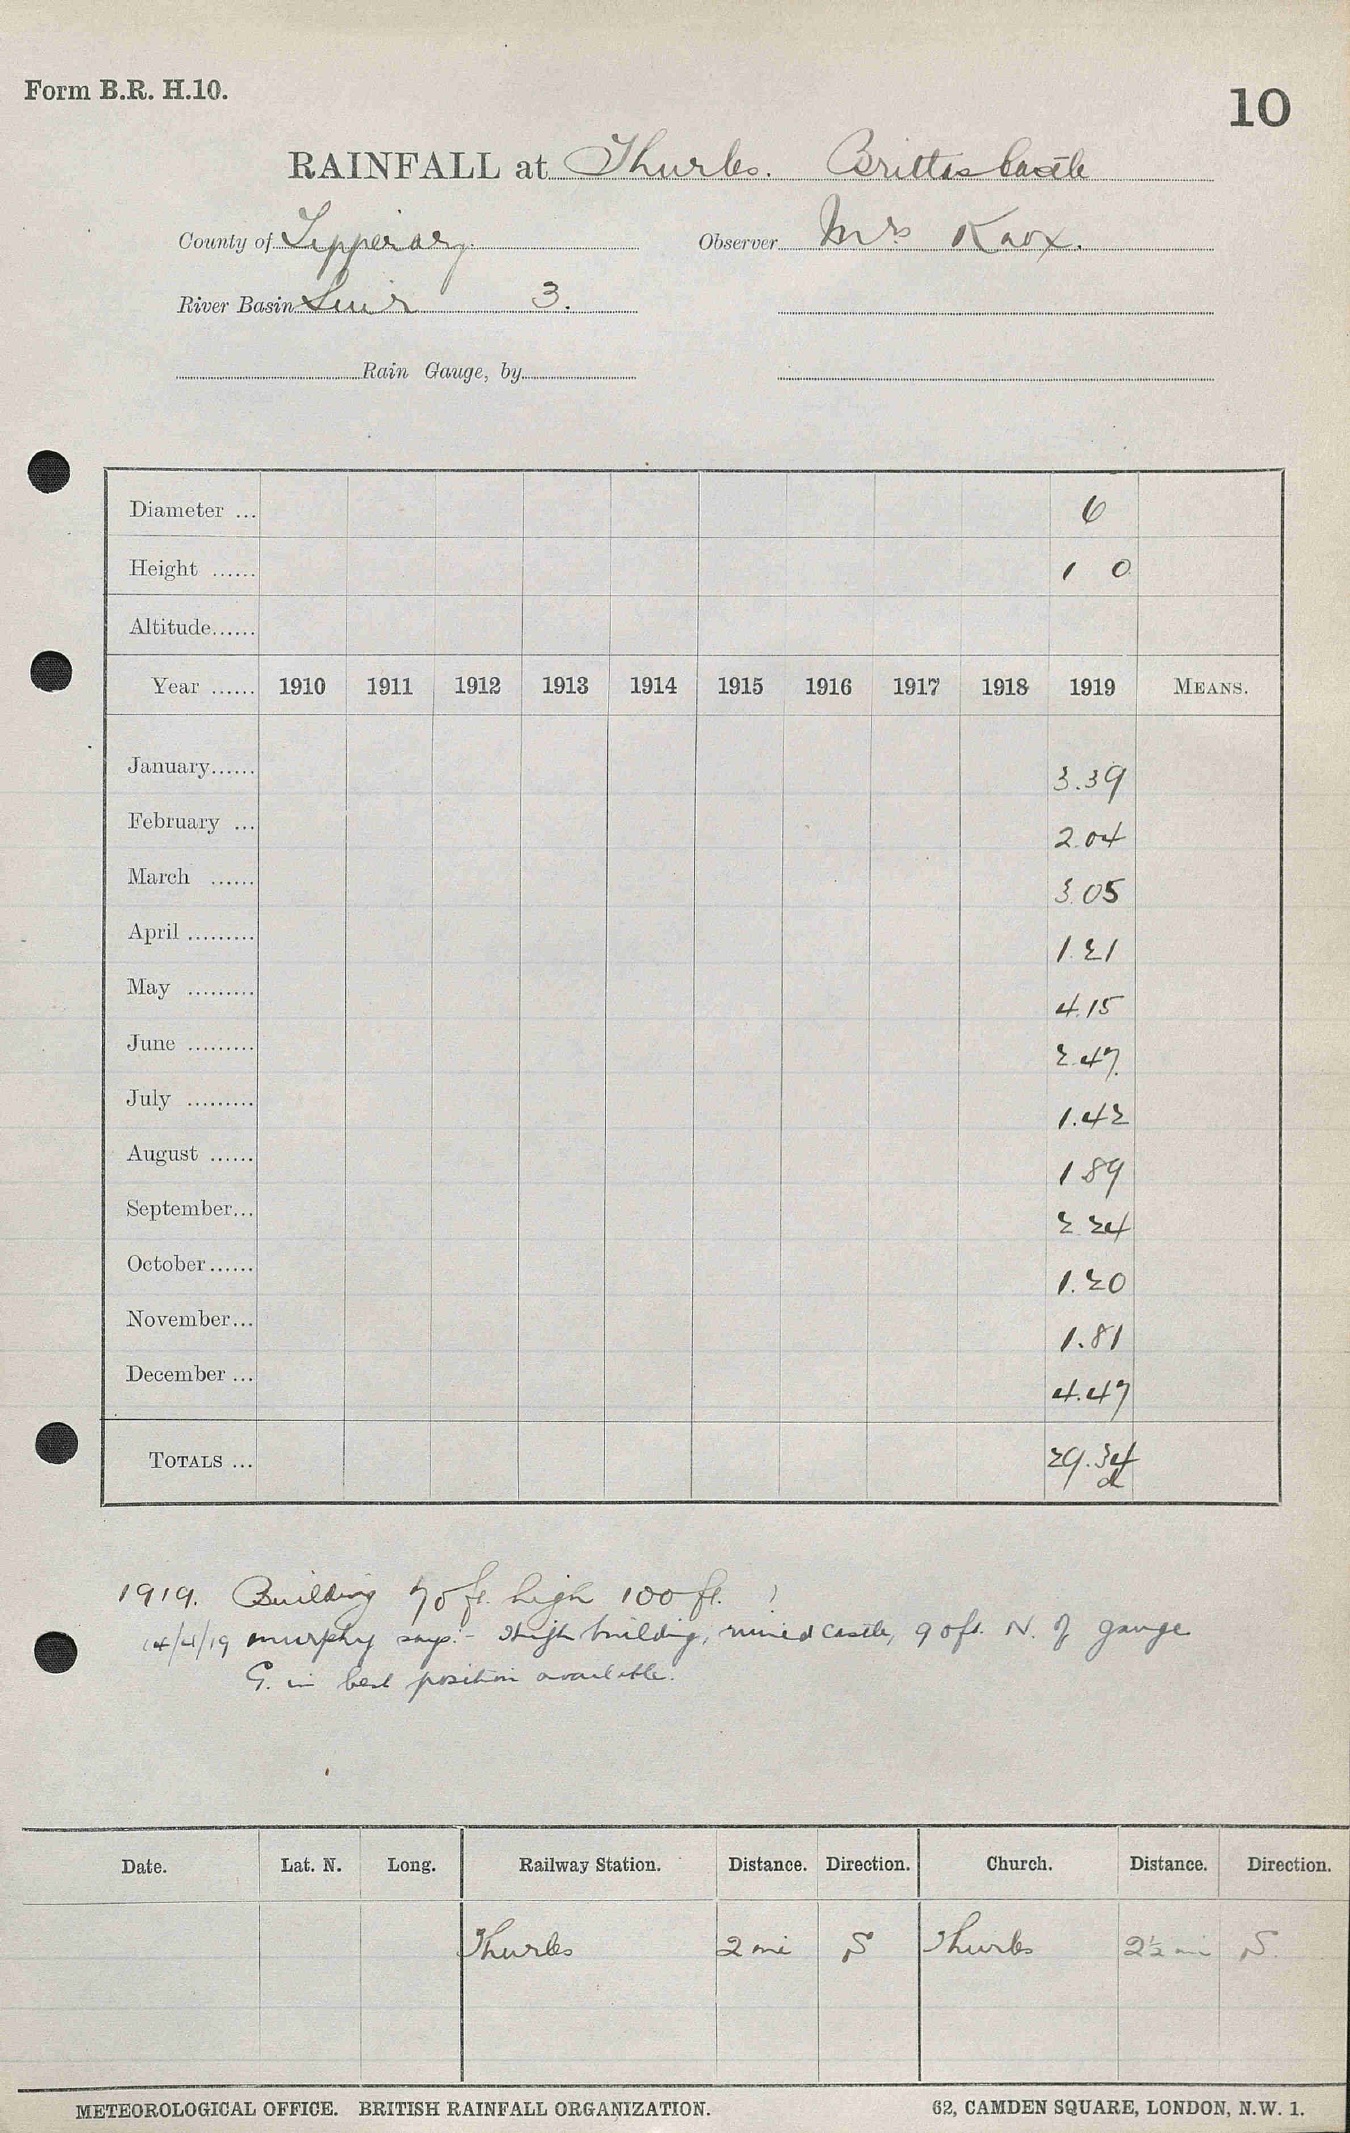 Form B.R. H.10.
10
RAINFALL at Thurles. Brittas Castle
County of Tipperary. Observer Mrs Knox.
River Basin Suir 3.
Rain Gauge, by
Diameter ... 6
Height ...... 1 0
Altitude......
Year ...... 1910 1911 1912 1913 1914 1915 1916 1917 1918 1919 MEANS.
January...... 3.39
February ... 2.04
March ...... 3.05
April ......... 1.21
May ......... 4.15
June ......... 2.47
July ......... 1.42
August ...... 1 89
September... 2 24
October...... 1.20
November... 1.81
December ... 4.47
TOTALS ... 29.34
d
1919. Building 70 ft. high 100 ft.
14/4/19 Murphy says:- High building, ruined castle, 90 ft. N. of gauge
G. in best position available.
Date. Lat. N. Long. Railway Station. Distance. Direction. Church. Distance. Direction.
Thurles 2 mi S Thurles 2½ mi S.
METEOROLOGICAL OFFICE. BRITISH RAINFALL ORGANIZATION. 62, CAMDEN SQUARE, LONDON, N.W. 1.